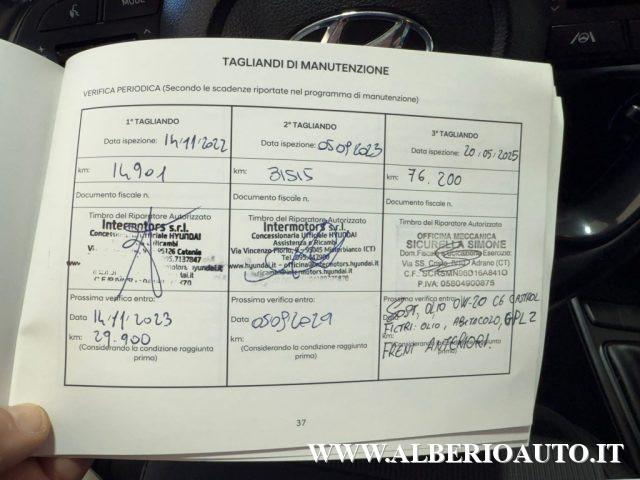 MODE
TAGLIANDI DI MANUTENZIONE
VERIFICA PERIODICA (Secondo le scadenze riportate nel programma di manutenzione)
1° TAGLIANDO
Data ispezione: 14/11/2022
km: 14901
Documento fiscale n.
Timbro del Riparatore Autorizzato
Intermotors s.r.l.
Concessionaria Ufficiale HYUNDAI
Ricambi
95126 Catania
.7137847
motors.hyundai.it
Prossima verifica entro:
Data 14/11/2023
km: 29.900
(Considerando la condizione raggiunta
prima)
2° TAGLIANDO
Data ispezione: 05092023
km: 31515
Documento fiscale n.
Timbro del Riparatore Autorizzato
Intermotors s.r.l.
Concessionaria Ufficiale HYUNDAI
Assistenza e Ricambi
95045 Misterbianco (CT)
www.hyundai.it - officina@intermotors.hyundai.it
ricambi@intermotors.hyundai.it
Prossima verifica entro:
Data 05092024
km:
(Considerando la condizione raggiunta
prima)
3° TAGLIANDO
Data ispezione: 20.05.2025
km: 76.200
Documento fiscale n.
Timbro del Riparatore Autorizzato
OFFICINA MECCANICA
SICURELLA SIMONE
Dom.Fiscale Esercizio:
Via SS. Adrano (CT)
C.F. SCRSMN96D16A841O
P.IVA: 05804900875
Prossima verifica entro:
SOST. OLIO 0W-20 C6 CASTROL
FILTRI: OLIO, ABITACOLO, GPL 2
FRENI ANTERIORI.
prima)
37
WWW.ALBERIOAUTO.IT